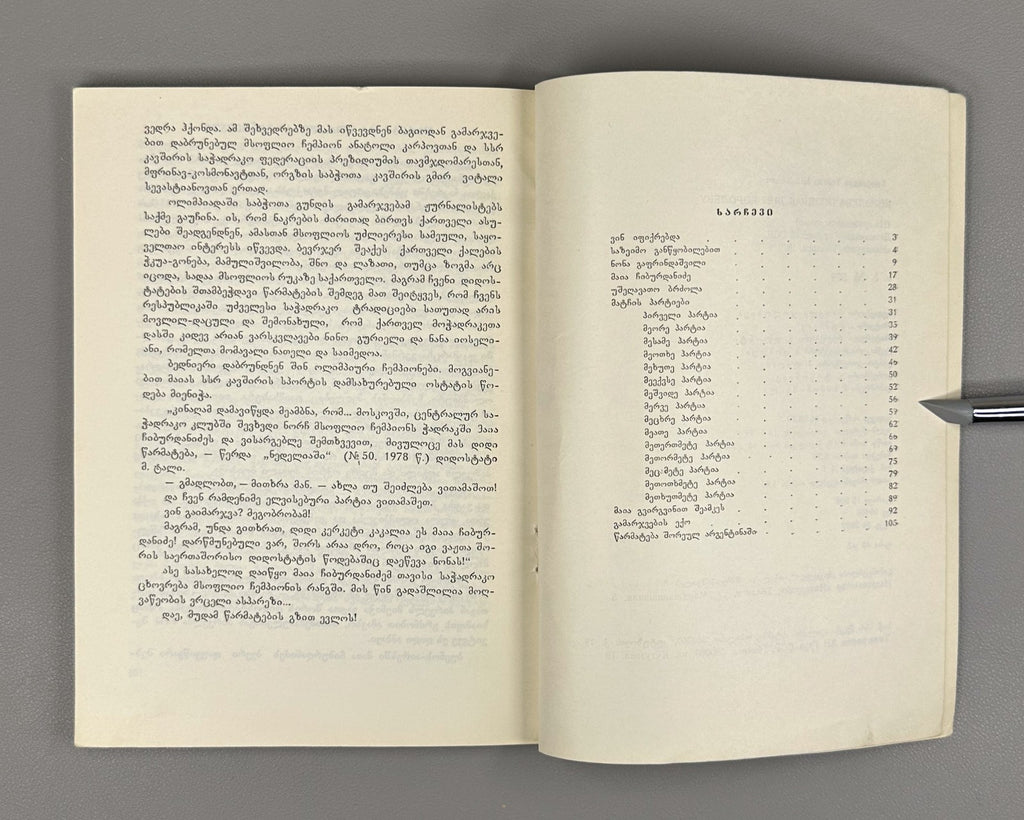 ვედრა ჰქონდა. ამ შეხვედრებზე მას იწვევდნენ ბაგიოდან გამარჯვე-
ბით დაბრუნებულ მსოფლიო ჩემპიონ ანატოლი კარპოვთან და სსრ
კავშირის საჭადრაკო ფედერაციის პრეზიდიუმის თავმჯდომარესთან,
მფრინავ-კოსმონავტთან, ორგზის საბჭოთა კავშირის გმირ ვიტალი
სევასტიანოვთან ერთად.
ოლიმპიადაში საბჭოთა გუნდის გამარჯვებამ ჟურნალისტებს
საქმე გაუჩინა. ის, რომ ნაკრების ძირითად ბირთვს ქართველი ასუ-
ლები შეადგენდნენ, ამასთან მსოფლიოს უძლიერესი სამეული, საყო-
ველთაო ინტერესს იწვევდა. ბევრჯერ შეაქეს ქართველი ქალების
ჭკუა-გონება, მამულიშვილობა, შნო და ლაზათი, თუმცა ზოგმა არც
იცოდა, სადაა მსოფლიოს რუკაზე საქართველო. მაგრამ ჩვენი დიდოს-
ტატების შთამბეჭდავი წარმატების შემდეგ მათ შეიტყვეს, რომ ჩვენს
რესპუბლიკაში უძველესი საჭადრაკო ტრადიციები სათუთად არის
მოვლილ-დაცული და შემონახული, რომ ქართველ მოჭადრაკეთა
დასში კიდევ არიან ვარსკვლავები ნინო გურიელი და ნანა იოსელი-
ანი, რომელთა მომავალი ნათელი და საიმედოა.
ბედნიერი დაბრუნდნენ შინ ოლიმპიური ჩემპიონები. მოგვიანე-
ბით მაიას სსრ კავშირის სპორტის დამსახურებული ოსტატის წო-
დება მიენიჭა.
„კინაღამ დამავიწყდა მეამბნა, რომ... მოსკოვში, ცენტრალურ სა-
ჭადრაკო კლუბში შევხვდი ნორჩ მსოფლიო ჩემპიონს ჭადრაკში მაია
ჩიბურდანიძეს და ვისარგებლე შემთხვევით, მივულოცე მას დიდი
წარმატება, — წერდა „ნედელიაში“ (№ 50. 1978 წ.) დიდოსტატი
მ. ტალი.
— გმადლობთ, — მითხრა მან. — ახლა თუ შეიძლება ვითამაშოთ!
და ჩვენ რამდენიმე ელვისებური პარტია ვითამაშეთ.
ვინ გაიმარჯვა? მეგობრობამ!
მაგრამ, უნდა გითხრათ, დიდი კერკეტი კაკალია ეს მაია ჩიბურ-
დანიძე! დარწმუნებული ვარ, შორს არაა დრო, როცა იგი ვაჟთა შო-
რის საერთაშორისო დიდოსტატის წოდებაშიც დაეწევა ნონას!“
ასე სასახელოდ დაიწყო მაია ჩიბურდანიძემ თავისი საჭადრაკო
ცხოვრება მსოფლიო ჩემპიონის რანგში. მის წინ გადაშლილია მოღ-
ვაწეობის ვრცელი ასპარეზი...
დაე, მუდამ წარმატების გზით ევლოს!
ᲡᲐᲠᲩᲔᲕᲘ
ვინ იფიქრებდა 3
საზეიმო განწყობილებით 4
ნონა გაფრინდაშვილი 9
მაია ჩიბურდანიძე 17
უშეღავათო ბრძოლა 28
მატჩის პარტიები 31
პირველი პარტია 31
მეორე პარტია 35
მესამე პარტია 39
მეოთხე პარტია 42
მეხუთე პარტია 46
მეექვსე პარტია 50
მეშვიდე პარტია 52
მერვე პარტია 56
მეცხრე პარტია 57
მეათე პარტია 62
მეთერთმეტე პარტია 66
მეთორმეტე პარტია 67
მეცამეტე პარტია 75
მეთოთხმეტე პარტია 79
მეთხუთმეტე პარტია 82
მაია გვირგვინით შეამკეს 89
გამარჯვების ექო 92
წარმატება შორეულ არგენტინაში 105